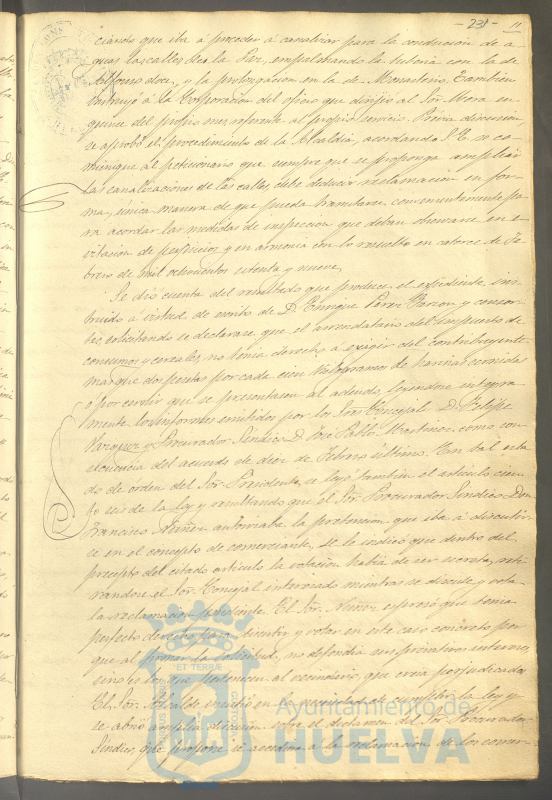 - 231 -
ciándo que iba á proceder á canalizar para la conducción de a-
guas las calles de la Paz, empalmando la tubería con la de
Alfonso doce, y la prolongación en la de Monasterio. También
instruyó á la Corporación del oficio que dirijió al Sor. Mora en
quince del propio mes referente al propio servicio. Previa discusión,
se aprobó el procedimiento de la Alcaldía, acordando S. E. se co-
munique al peticionario que siempre que se proponga ampliar
las canalizaciones de las calles debe deducir reclamación en for-
ma, única manera de que pueda tramitarse convenientemente pa-
ra acordar las medidas de inspección que deban observarse en e-
vitación de perjuicios y en armonía con lo resuelto en catorce de Fe-
brero de mil ochocientos setenta y nueve.
Se dió cuenta del resultado que produce el expediente ins-
truido á virtud de escrito de D. Enrique Pérez y consor-
tes, solicitando se declarase que el arrendatario del impuesto de
consumos y cereales, no tenía derecho á exigir del contribuyente
más que dos pesetas por cada cien kilogramos de harinas cernidas
o por cerner que se presentasen al adeudo, leyéndose íntegra-
mente los informes emitidos por los Sres. Concejal D. Felipe
Vazquez y Procurador Síndico D. José Pablo Martínez como con-
secuencia del acuerdo de diez de Febrero último. En tal esta-
do de orden del Sor. Presidente, se leyó también el artículo cien-
to seis de la ley y resultando que el Sor. Procurador Síndico Don
Francisco Núñez autorizaba la pretensión que iba á discutir-
se en el concepto de comerciante, se le indicó que dentro del
precepto del citado artículo la votación había de ser secreta, reti-
randose el Sor. Concejal interesado mientras se discute y vota
la reclamación pendiente. El Sor. Núñez expresó que tenía
perfecto derecho para discutir y votar en este caso concreto por
que al firmar la solicitud, no defendía sus privativos intereses,
sino los que pertenecen al vecindario, que creía perjudicados.
El Sor. Alcalde insistió en la necesidad de cumplir la ley y
se abrió amplia discusión sobre el dictamen del Sor. Procurador
Síndico, que propone se acceda á la reclamación de los comer-
Ayuntamiento de
HUELVA